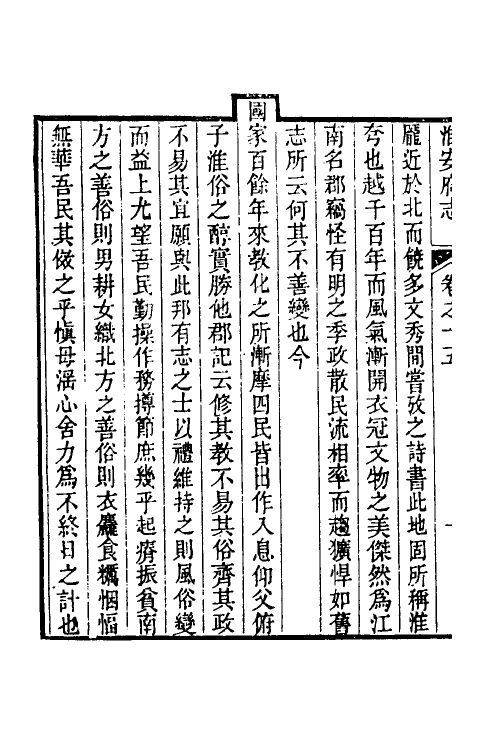 淮安府志 卷之十五 一
龐近於北而饒多文秀間嘗攷之詩書此地固所稱淮
夸也越千百年而風氣漸開衣冠文物之美傑然為江
南名郡竊怪有明之季政散民流相率而趨獷悍如舊
志所云何其不善變也今
國家百餘年來教化之所漸摩四民皆出作入息仰父俯
子淮俗之醇實勝他郡記云修其教不易其俗齊其政
不易其宜願與此邦有志之士以禮維持之則風俗變
而益上尤望吾民勤操作務撙節庶幾乎起瘠振貧南
方之善俗則男耕女織北方之善俗則衣麤食糲悃愊
無華吾民其儆之乎慎毋滛心舍力為不終日之計也